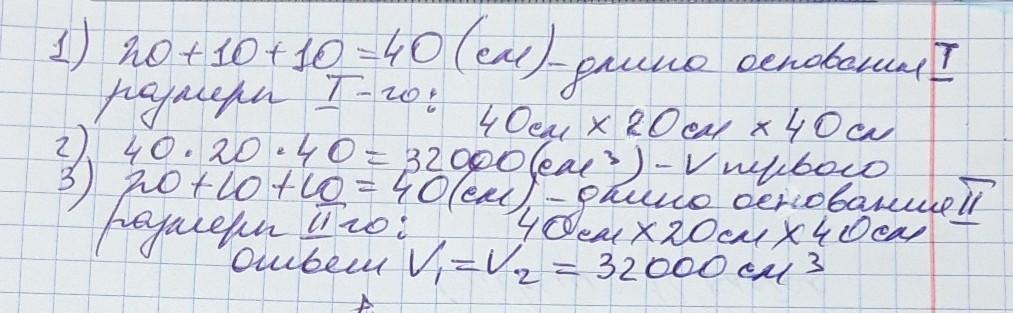 1) 20+10+10=40(см)-длина основания I
размеры I-го:
40см × 20см × 40см
2) 40·20·40=32000(см³)-V первого
3) 20+10+10=40(см)-длина основания II
размеры II го: 40см×20см×40см
Ответ V₁=V₂=32000см³